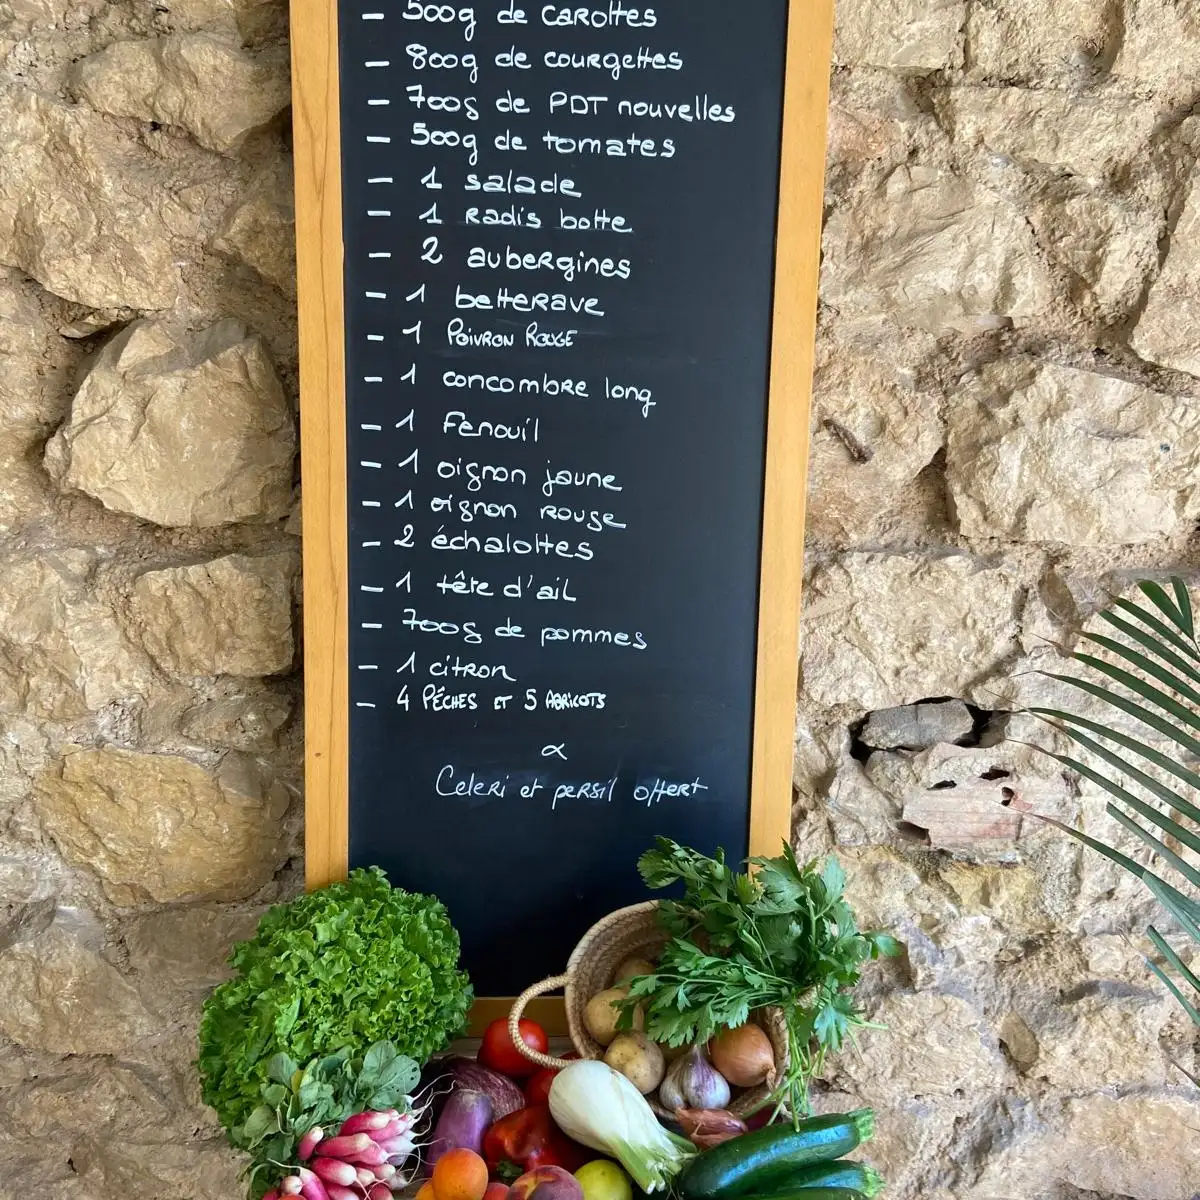 - 500g de carottes
- 800g de courgettes
- 700g de PDT nouvelles
- 500g de tomates
- 1 salade
- 1 Radis botte
- 2 aubergines
- 1 betterave
- 1 POIVRON ROUGE
- 1 concombre long
- 1 Fenouil
- 1 oignon jaune
- 1 oignon rouge
- 2 échalottes
- 1 tête d'ail
- 700g de pommes
- 1 citron
- 4 PÊCHES ET 5 ABRICOTS
∝
Celeri et persil offert